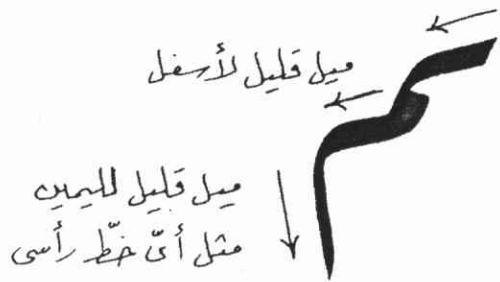 ميل قليل لأسفل
ميل قليل لليمين
مثل أىّ خطّ رأسى